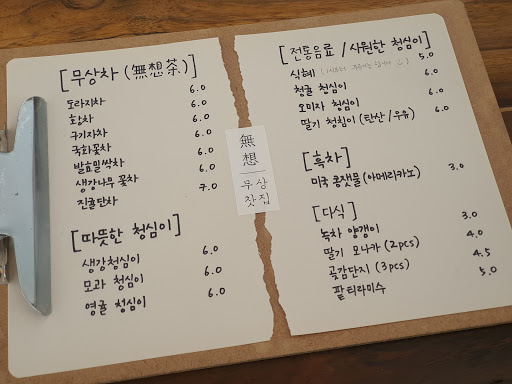 [무상차 (無想茶)]
도라지차 6.0
홍차 6.0
구기자차 6.0
국화꽃차 6.0
발효밀싹차 6.0
생강나무 꽃차 6.0
진귤단차 7.0
[따뜻한 청심이]
생강청심이 6.0
모과 청심이 6.0
영귤 청심이 6.0
無想
무상
찻집
[전통음료 / 시원한 청심이]
식혜 5.0
청귤 청심이 6.0
오미자 청심이 6.0
딸기 청침이 (탄산/우유) 6.0
[흑차]
미국 콩잿물 (아메리카노) 3.0
[다식]
녹차 양갱이 3.0
딸기 모나카 (2pcs) 4.0
곶감단지 (3pcs) 4.5
팥티라미수 5.0